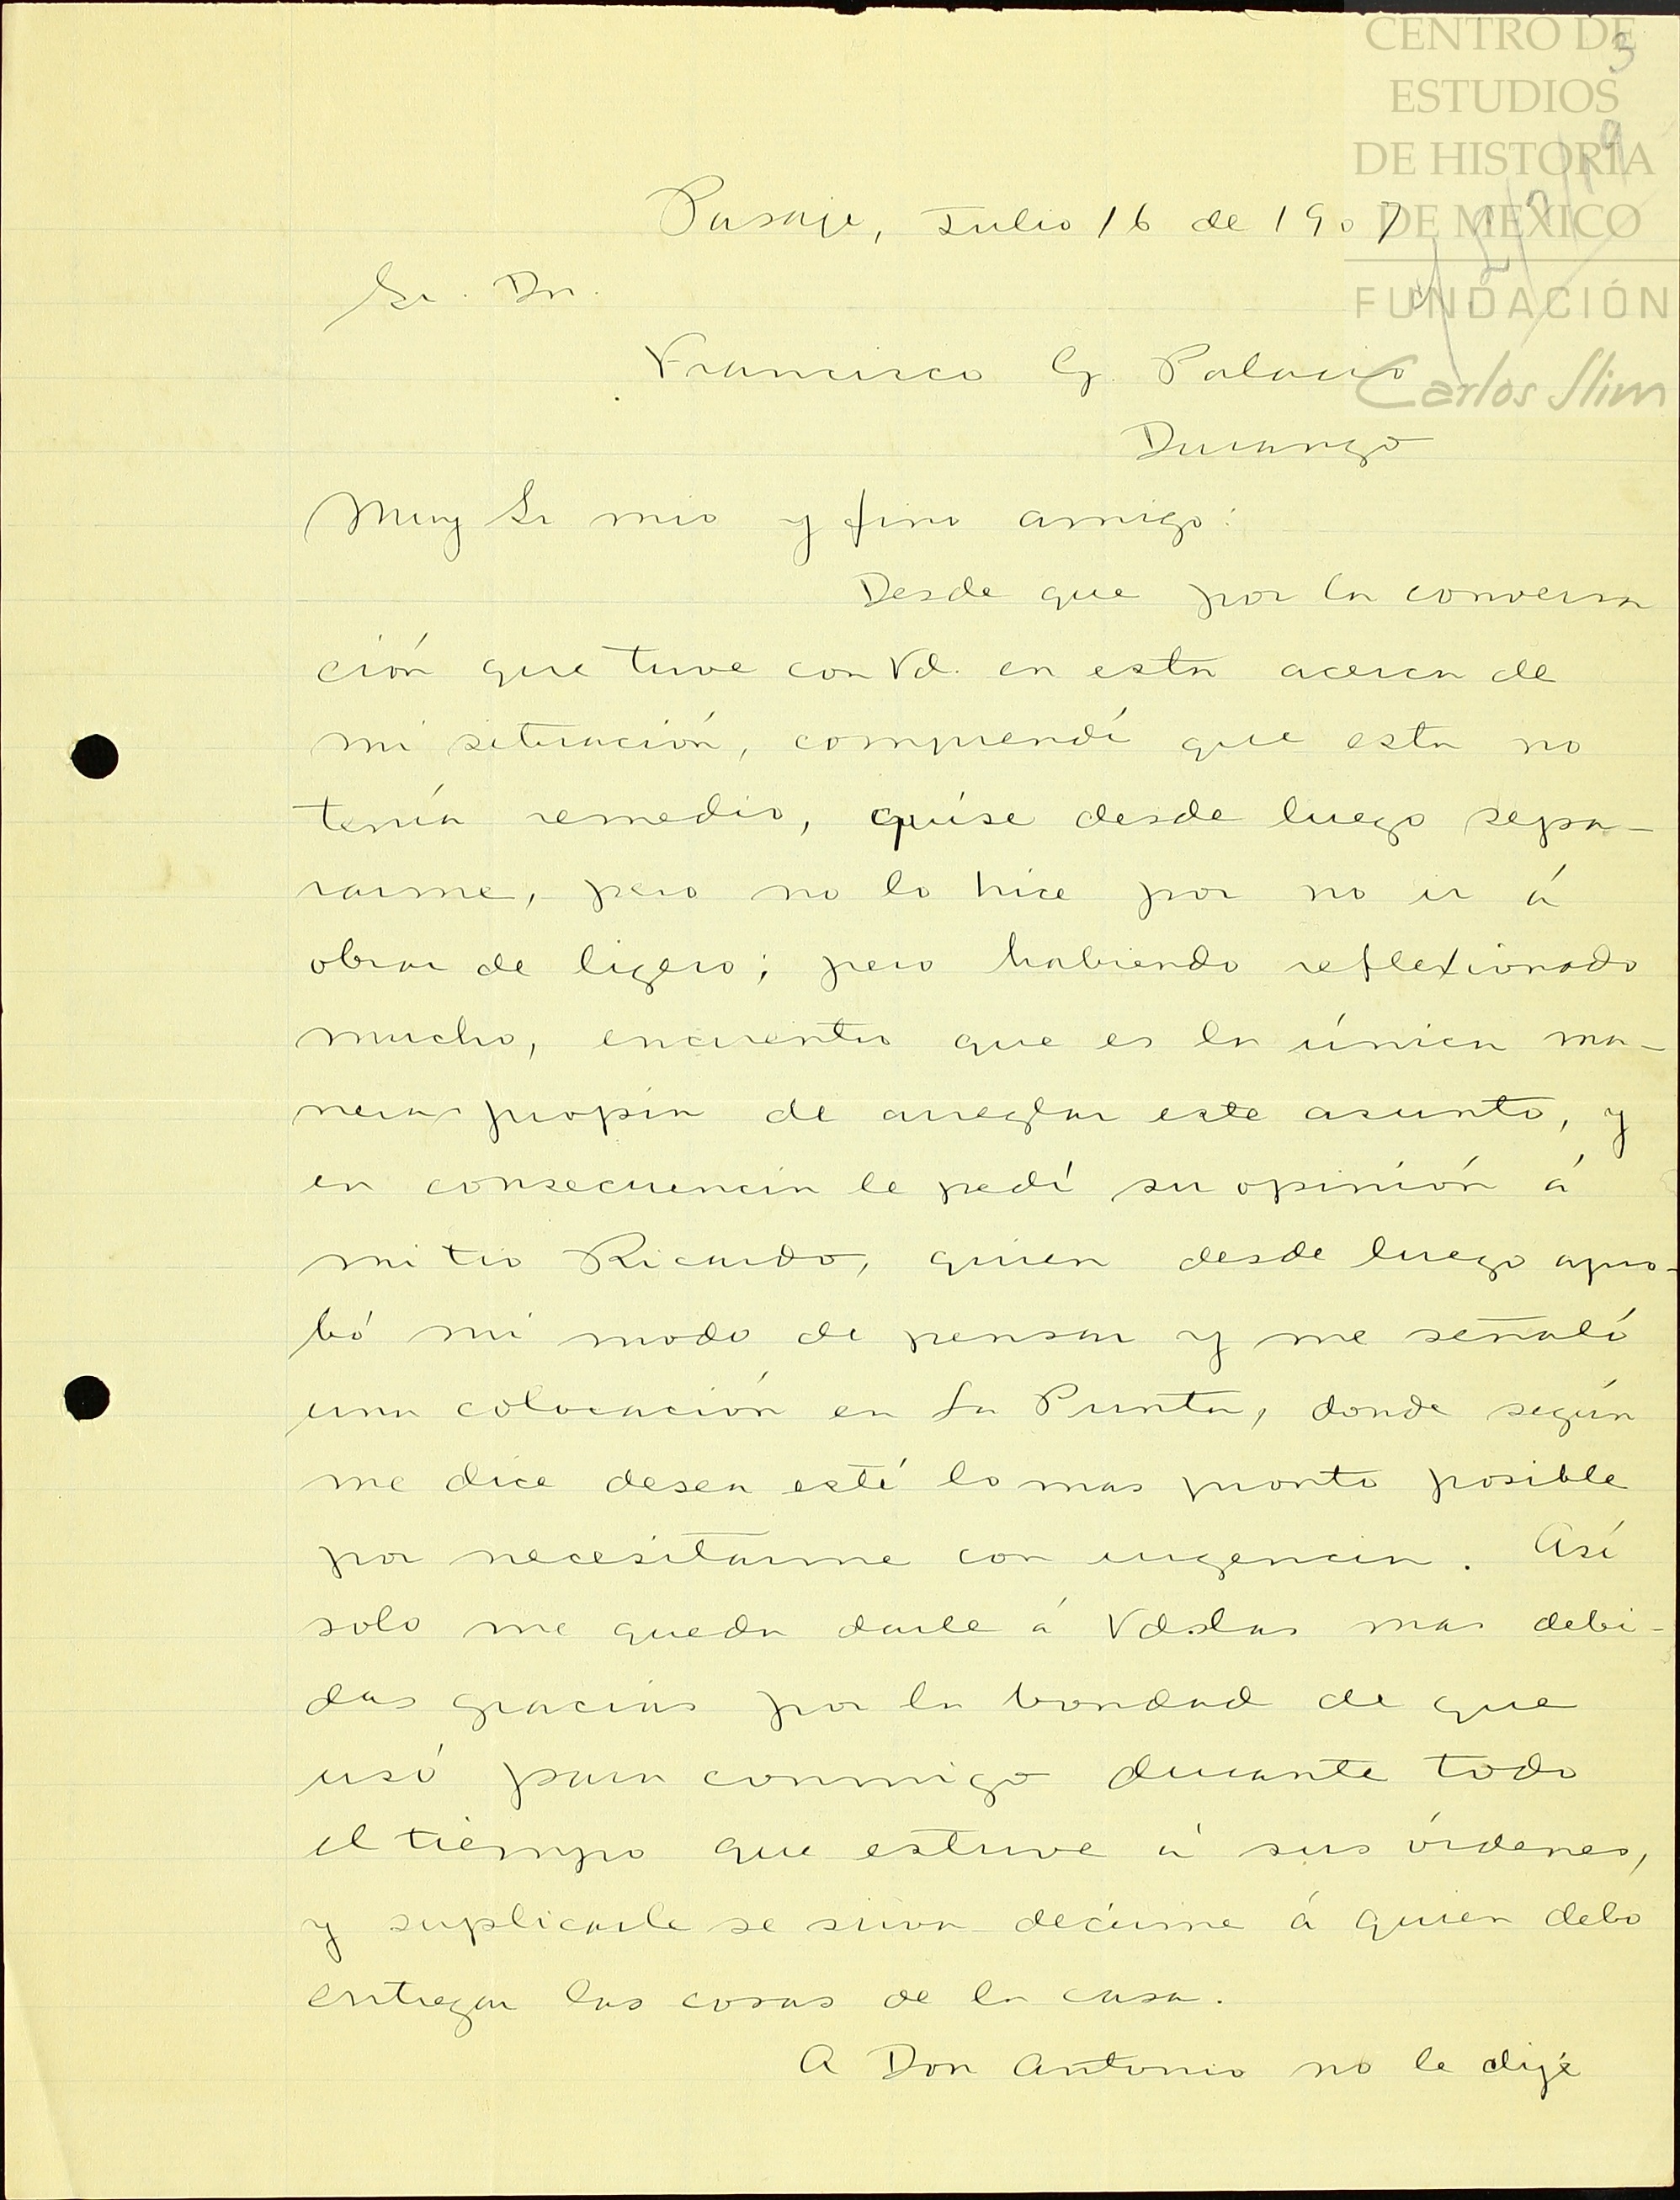 CENTRO DE
ESTUDIOS
DE HISTORIA
DE MEXICO
FUNDACIÓN
Carlos Slim
3
Pasaje, Julio 16 de 1907
Sr. Dn.
Francisco G. Palacio
Durango
Muy Sr mio y fino amigo:
Desde que por la conversa
ción que tuve con Vd. en esta acerca de
mi situación, comprendí que esta no
tenía remedio, quise desde luego sepa-
rarme, pero no lo hice por no ir á
obrar de ligero; pero habiendo reflexionado
mucho, encuentro que es la única ma-
nera propia de arreglar este asunto, y
en consecuencia le pedí su opinión á
mi tio Ricardo, quien desde luego apro-
bó mi modo de pensar y me señaló
una colocación en La Punta, donde según
me dice desea esté lo mas pronto posible
por necesitarme con urgencia. Así
solo me queda darle á Vds. las mas debi-
das gracias por la bondad de que
usó para conmigo durante todo
el tiempo que estuve á sus órdenes,
y suplicarle se sirva decirme á quien debo
entregar las cosas de la casa.
A Don Antonio no le dije